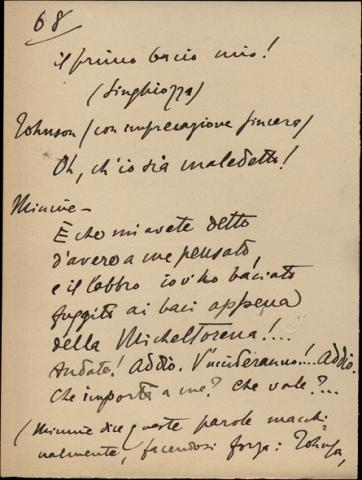 68
il primo bacio mio!
(singhiozza)
Johnson (con imprecazione sincera)
Oh, ch'io sia maledetto!
Minnie –
È che mi avete detto
d'avere a me pensato,
e il labbro io v'ho baciato
fuggito ai baci appena
della Micheltorena!...
Andate! Addio. V'uccideranno!... Addio.
Che importa a me? Che vale?...
(Minnie dice queste parole macchi-
nalmente, facendosi forza: Johnson,